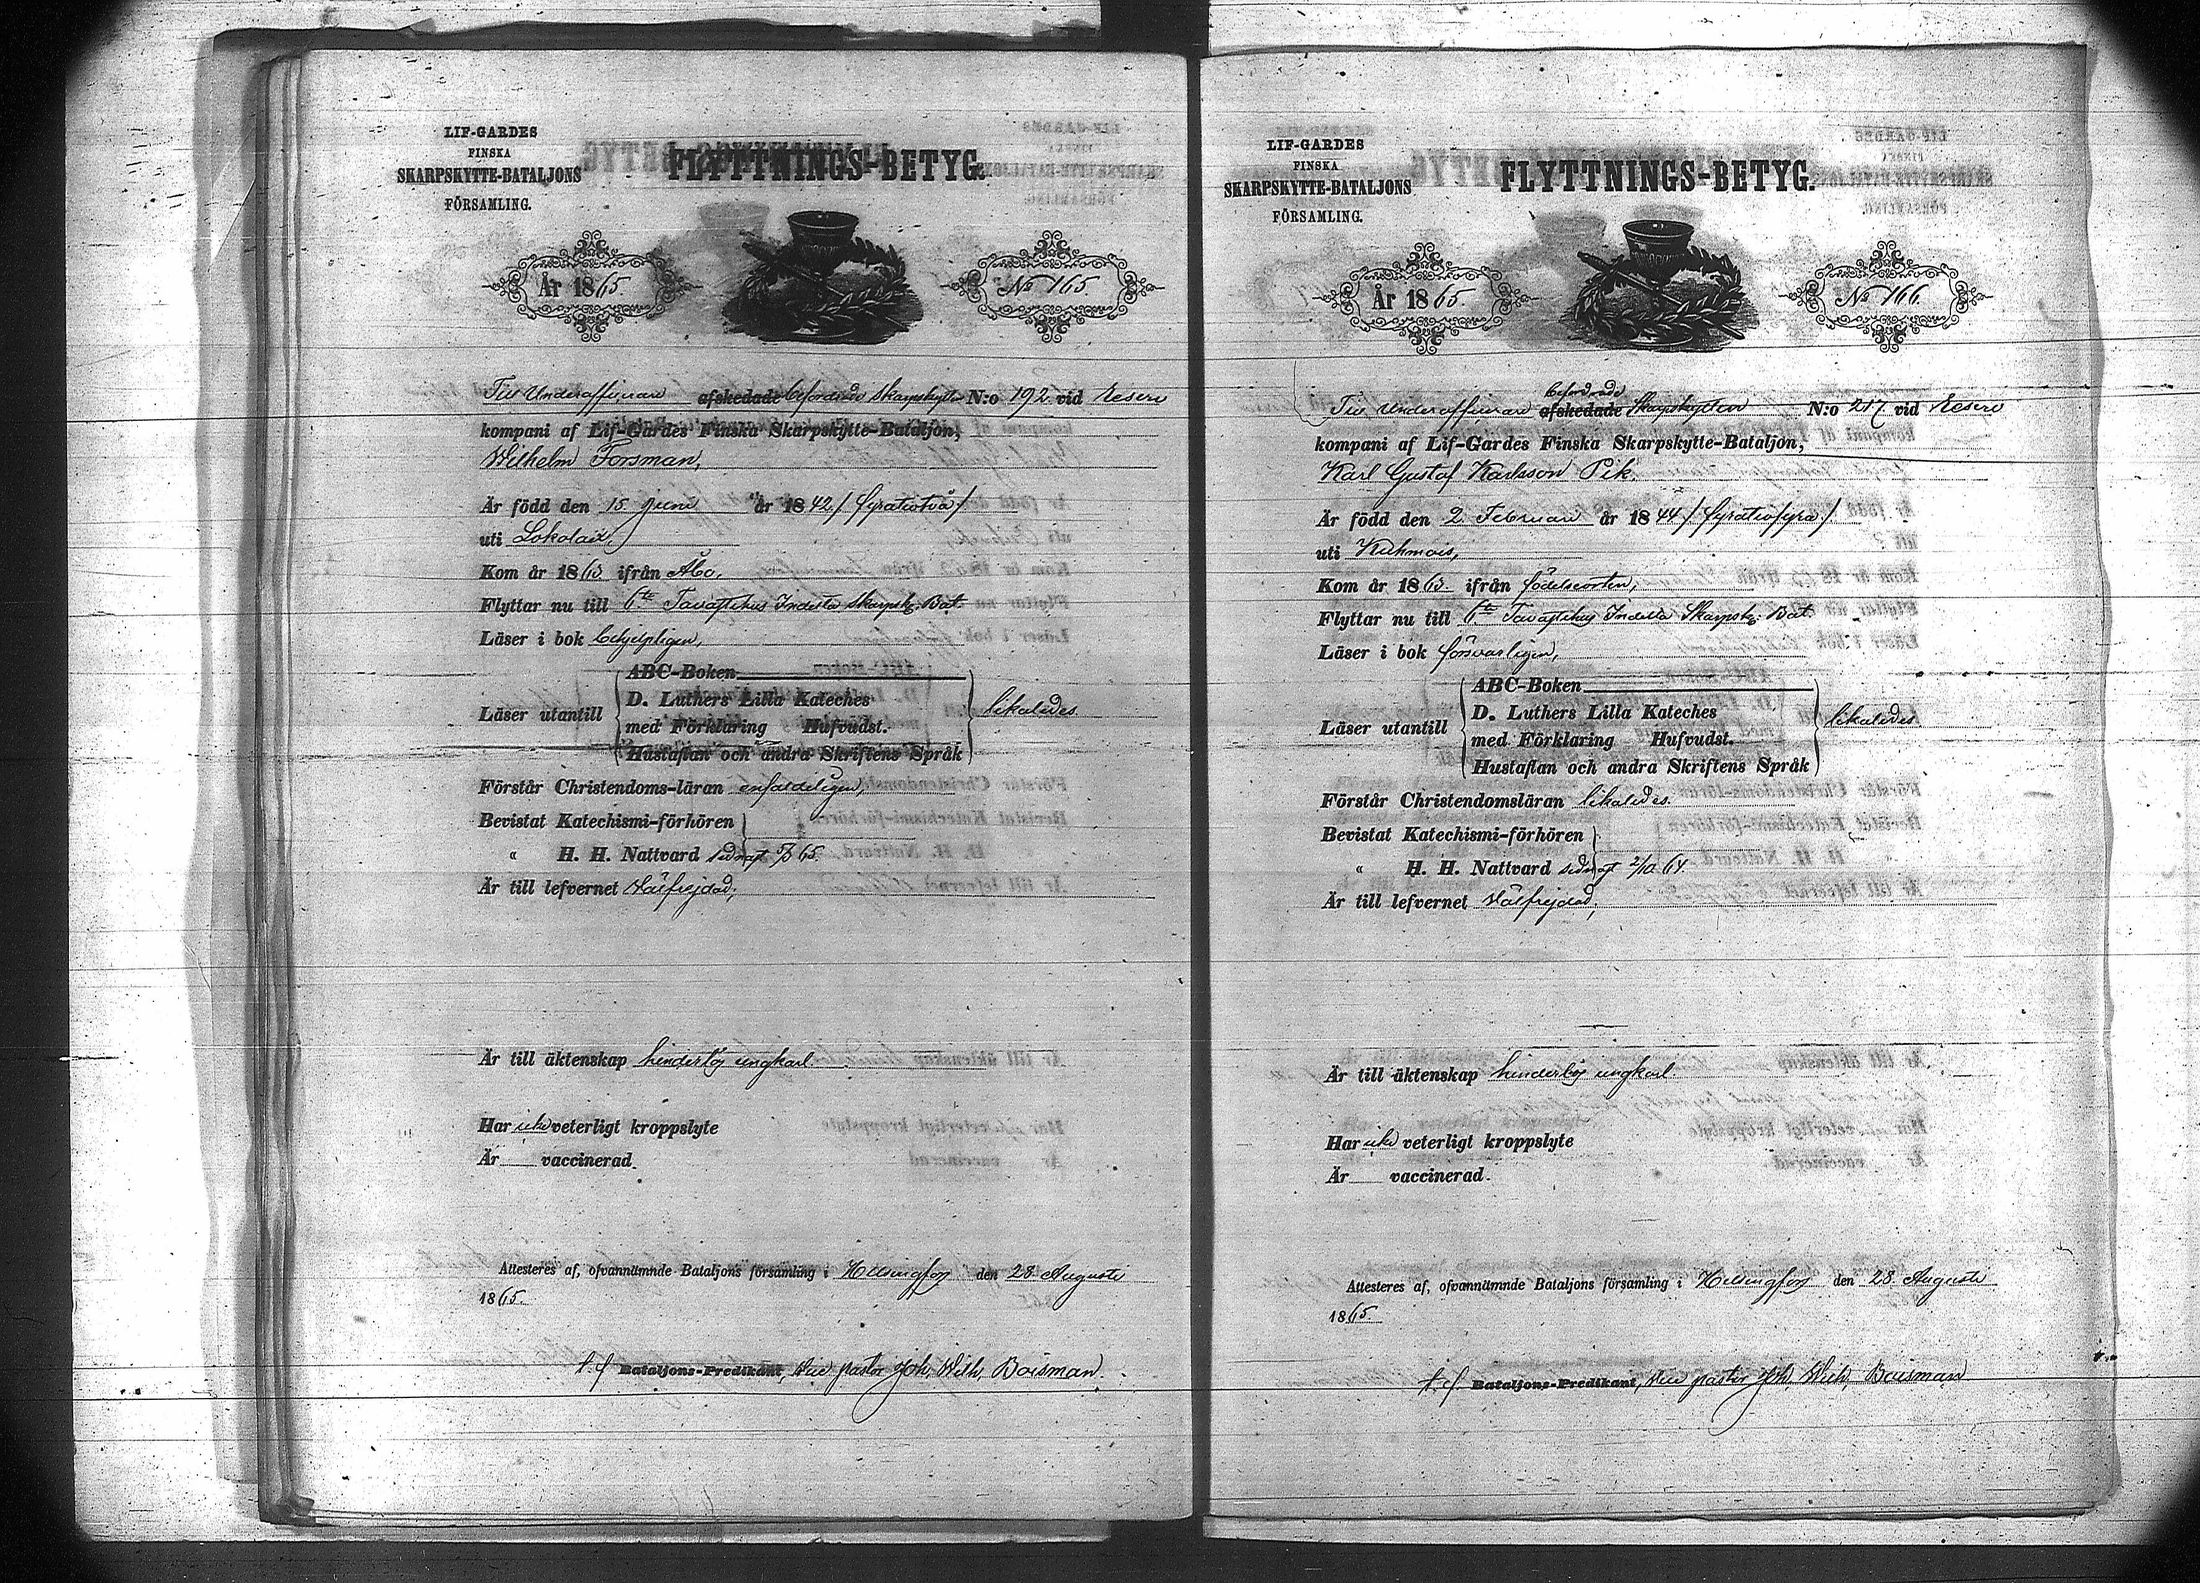 LIF-GARDES
FINSKA
SKARPSKYTTE-BATALJONS
FÖRSAMLING.
FLYTTNINGS-BETYG.
År 1865
No 165.
Till Underofficerare afskedade befordrade Skarpskytten N:o 192 vid Reserv
kompani af Lif-Gardes Finska Skarpskytte-Bataljon,
Wilhelm Forsman,
Är född den 15 Juni år 1842 / fyratiotvå /
uti Lokalax,
Kom år 1863 ifrån Åbo,
Flyttar nu till 6te Tavastehus Indelta Skarpsk: Bat.
Läser i bok behjelpligen,
ABC-Boken
D. Luthers Lilla Kateches
Läser utantill med Förklaring Hufvudst. likaledes.
Hustaflan och andra Skriftens Språk
Förstår Christendoms-läran enfaldeligen,
Bevistat Katechismi-förhören
" H. H. Nattvard sednast 65.
Är till lefvernet välfrejdad;
Är till äktenskap hinderlös ungkarl.
Har icke veterligt kroppslyte
Är vaccinerad.
Attesteres af, ofvannämnde Bataljons församling i Helsingfors den 28 Augusti
1865.
t. f. Bataljons-Predikant, Vice pastor Joh. Wilh. Boisman.
LIF-GARDES
FINSKA
SKARPSKYTTE-BATALJONS
FÖRSAMLING.
FLYTTNINGS-BETYG.
År 1865.
No 166.
befordrade
Till Underofficerare afskedade Skarpskytten N:o 217 vid Reserv
kompani af Lif-Gardes Finska Skarpskytte-Bataljon,
Karl Gustaf Karlsson Pik.
Är född den 2 Februari år 1844 / fyratiofyra /
uti Kuhmois,
Kom år 1863 ifrån födelseorten,
Flyttar nu till 6te Tavastehus Indelta Skarpsk: Bat.
Läser i bok försvarligen,
ABC-Boken
D. Luthers Lilla Kateches
Läser utantill med Förklaring Hufvudst. likaledes
Hustaflan och andra Skriftens Språk
Förstår Christendomsläran likaledes.
Bevistat Katechismi-förhören
" H. H. Nattvard sednast 2/10 64.
Är till lefvernet välfrejdad,
Är till äktenskap hinderlös ungkarl
Har icke veterligt kroppslyte
Är vaccinerad.
Attesteres af, ofvannämnde Bataljons församling i Helsingfors den 28 Augusti
1865.
t. f. Bataljons-Predikant, Vice pastor Joh. Wilh. Boisman